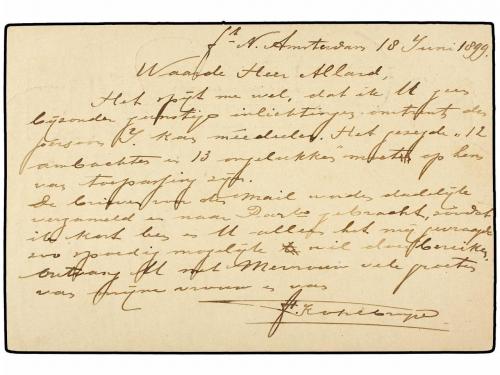 N. Amsterdam 18 Juni 1899.
Waarde Heer Allard,
Het spijt me wel, dat ik U geen
bijzonder gunstige inlichtingen omtrent den
persoon kan meedeelen. Het gezegde „12
ambachten en 13 ongelukken" moet op hem
van toepassing zijn.
De brieven van de Mail worden dadelijk
verzameld en naar Parbo gebracht, zoodat
ik kort ben en U alleen het mij gevraagde
zoo spoedig mogelijk wil doen bereiken.
Ontvang U met Mevrouw vele groeten
van mijne vrouw en van